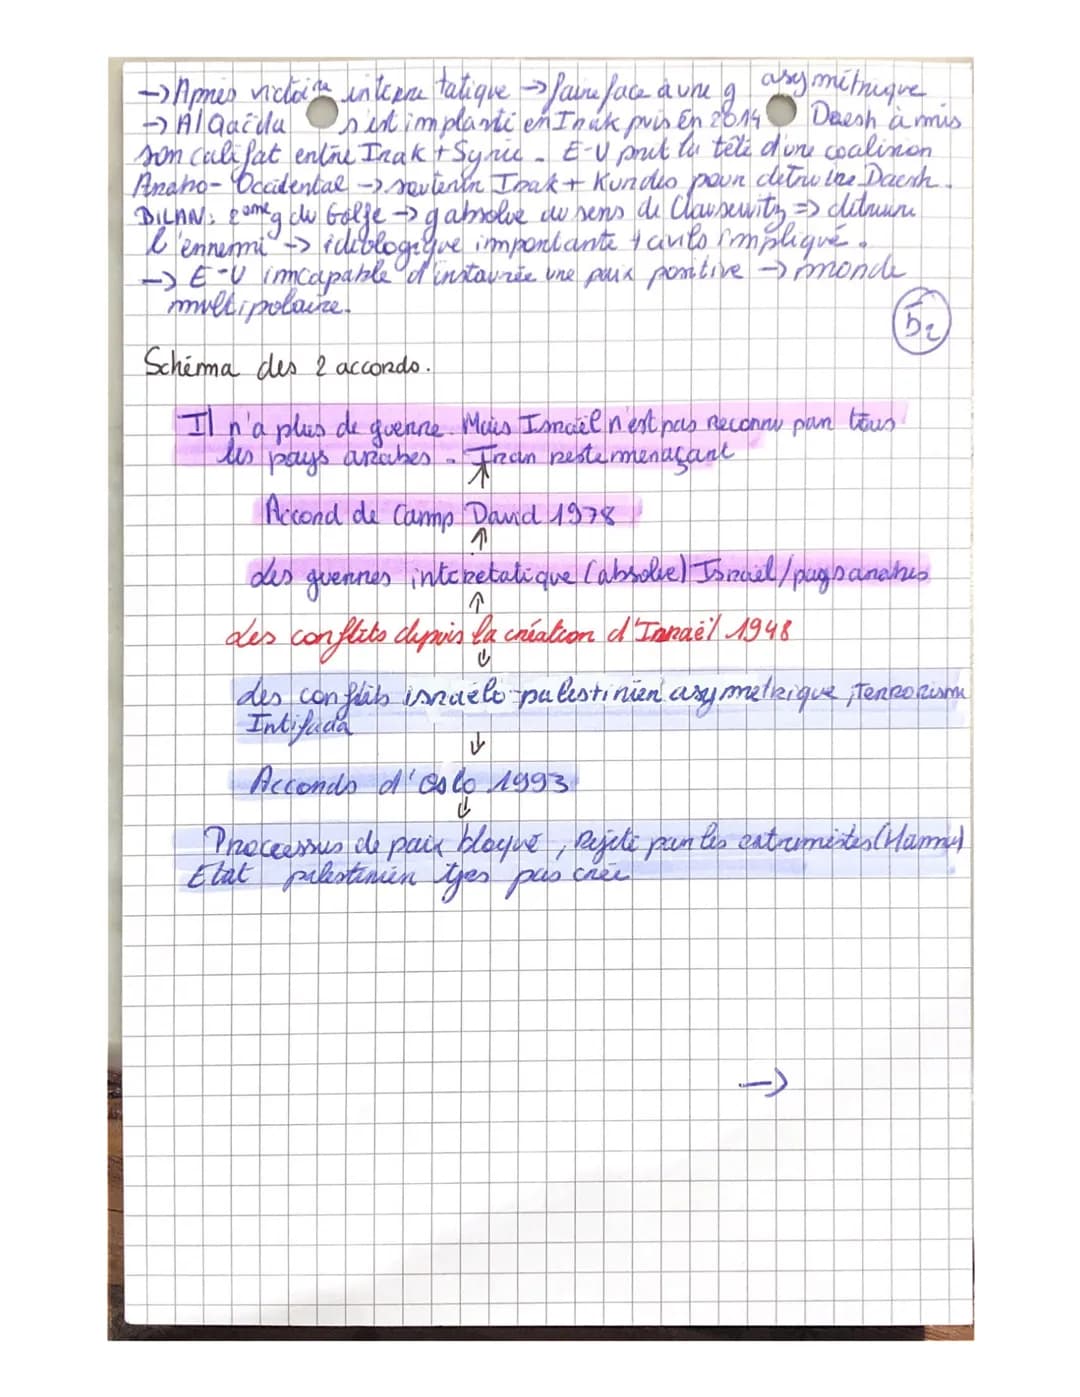 → Après victoire interetatique → faire face à une g asymétrique
→ Al Qaïda s'est implanti en Irak puis En 2014 Daesh à mis
son califat entre Irak + Syrie. E-U prit la tête d'une coalition
Arabo-Occidental → soutenir Irak + Kurdes pour detruire Daesh.
BILAN: 2ème g du Golfe → g absolue du sens de Clausewitz => détruire
l'ennemi → idéologique importante + civils impliqué.
→ E-U imcapable d'instaurée une paix positive → monde
multipolaire.
52
Schéma des 2 accords.
Il n'a plus de guerre. Mais Israël n'est pas Reconnu par tous
les pays arabes. Iran reste menaçant
↑
Accord de Camp David 1978
↑
des guerres interetatique (absolue) Israël/pays arabes
↑
des conflits depuis la création d'Israël 1948
↓
des conflits israélo-palestinien asymetrique, Terrorisme
Intifada
↓
Accords d'Oslo 1993
↓
Processus de paix bloqué, Rejeté par les extremistes (Hamas)
Etat palestinien pas créé
→